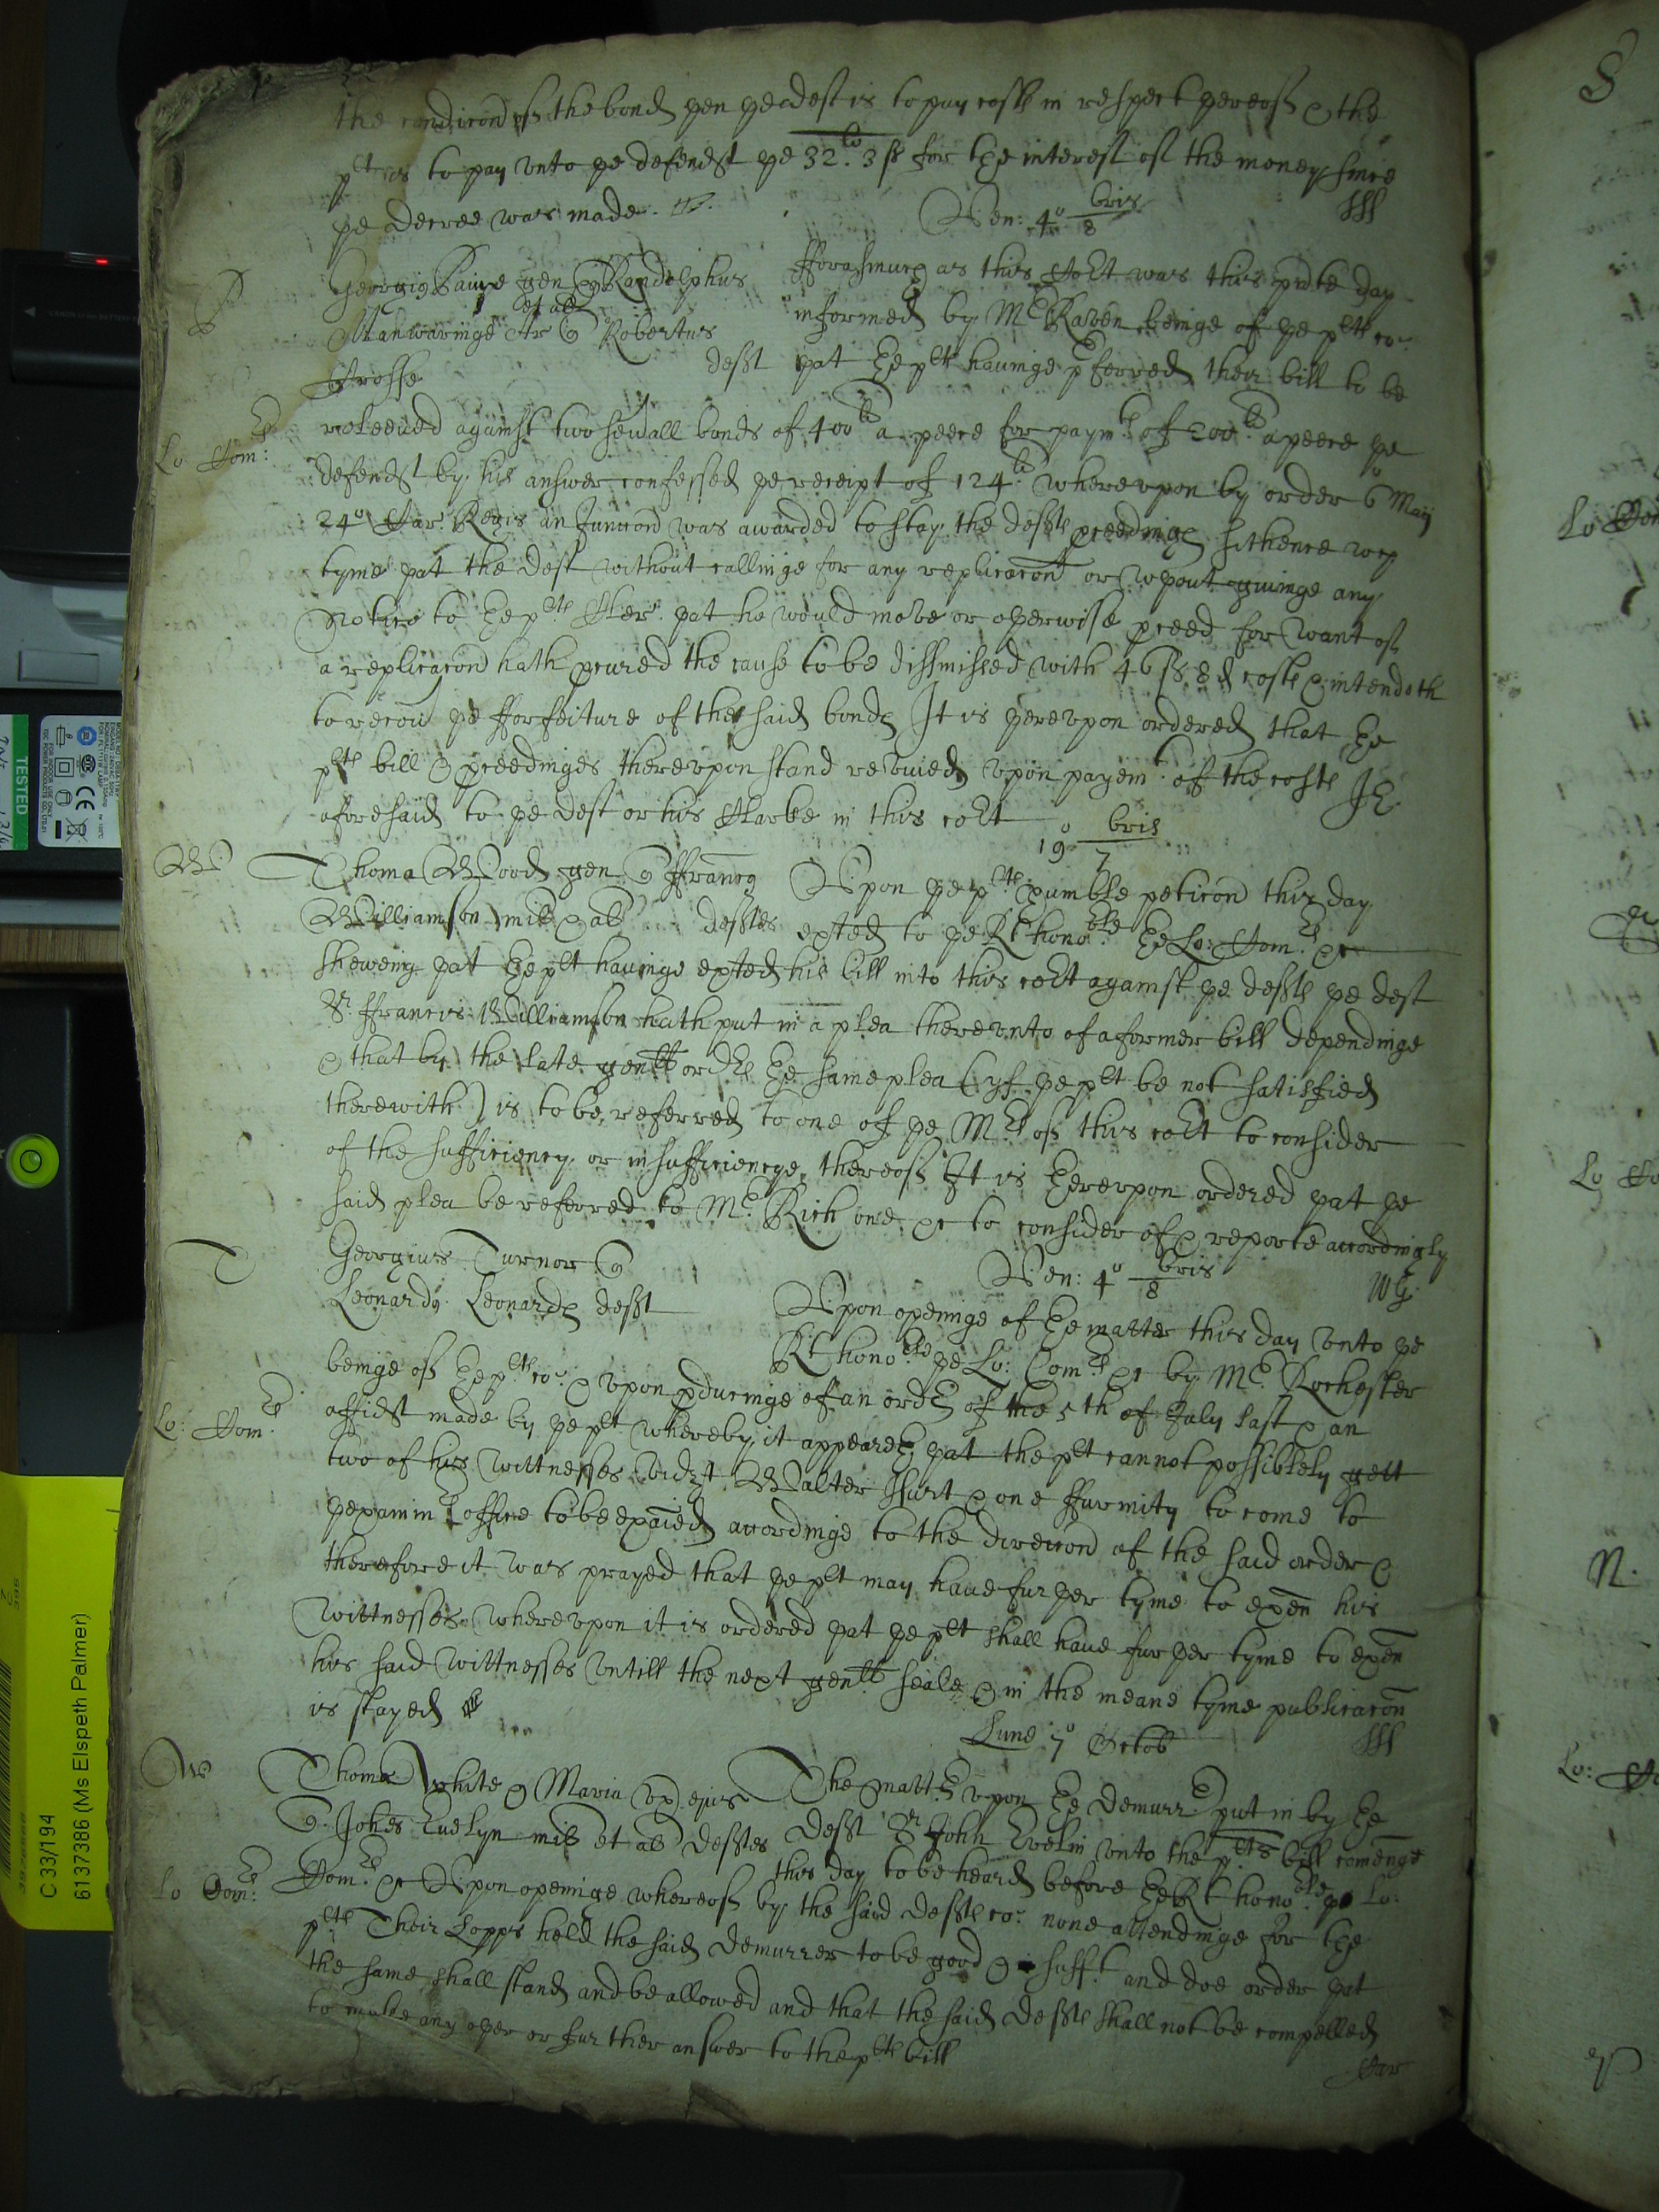 the condicon of the bond yen ye deft is to pay costs in respect yereof & the
plt is to pay vnto ye defendt ye 32li 3s for the interest of the money since
ye decree was made
Ven: 4o 8bris
Georgius gen & Randolphus fforasmuch as this Cort was this pnte day
et al
Manwaringe Ar & Robertus informed by Mr Raven beinge of ye plts co
Crosse deft yat ye plts hauinge pferred their bill to be
Lo Comrs
releeued against two seuall bonds of 400li a peece for paymt of 200li a peece ye
defendt by his answer confessed ye receipt of 124li wherevpon by order 6o Maij
24o Car Regis an Junccon was awarded to stay the defts pceedings sithence wch
tyme yat the deft without callinge for any replicacon or wthout giuinge any
notice to ye plts Clerk yat he would move or otherwise pceed for want of
a replicacon hath pcured the cause to be dissmissed with 46s 8d costs & intendeth
to recou ye fforfeiture of the said bonds It is yerevpon ordered that ye
plts bill & pceedinges therevpon stand reviued vpon payemt of the costs
aforesaid to ye deft or his Clarke in this cort
19o 7bris
Thomas Wood gen & ffrancus Vpon ye plts humble peticon this day
Williamson mil & al defts exted to ye Rt honoble ye Lo: Comrs &c
sheweing yat ye plt hauinge exted his bill into this cort against ye defts ye deft
Sr ffrancis Williamson hath put in a plea therevnto of a former bill dependinge
& that by the late genll ordrs ye same plea (yf ye plt be not satisfied
therewith) is to be referred to one of ye Mrs of this cort to consider
of the sufficiency or insufficiencye thereof It is herevpon ordered yat ye
said plea be referred to Mr Rich one &c to consider of & reporte accordingly
T
Georgius Turnor &
Ven: 4o 8bris
WG
Leonardus Leonards deft Vpon openinge of ye matter this day vnto ye
Rt honoble ye Lo: Comrs &c by Mr Rochester
beinge of ye plts co & vpon pducinge of an ordr of the 5th of July last & an
Lo: Comrs
affidt made by ye plt whereby it appeareth yat the plt cannot possiblely gett
two of his wittnesses vidzt Walter Hurt & one ffurmity to come to
ye examinrs office to be exaied accordinge to the direccon of the said order &
therefore it was prayed that ye plt may haue furyer tyme to exen his
wittnesses wherevpon it is ordered yat ye plt shall haue furyer tyme to exen
his said wittnesses vntill the next genll seale & in the meane tyme publicacon
is stayed
Lune 7o Octob
Thomas White & Maria vx ejus The mattr vpon ye demurrr put in by ye
& Johes Euelyn mil et al defts deft Sr John Evelin vnto the plts bill comenge
this day to be heard before ye Rt honoble ye Lo:
Lo Comrs
Comrs &c Vpon openinge whereof by the said defts co none attendinge for the
plts Their Lopps held the said demurrer to be good & sufft and doe order yat
the same shall stand and be allowed and that the said defts shall not be compelled
to make any oyer or further answer to the plts bill
Car
S
Lo
N.
Lo:
TESTED
C 33/194
6137386 (Ms Elspeth Palmer)